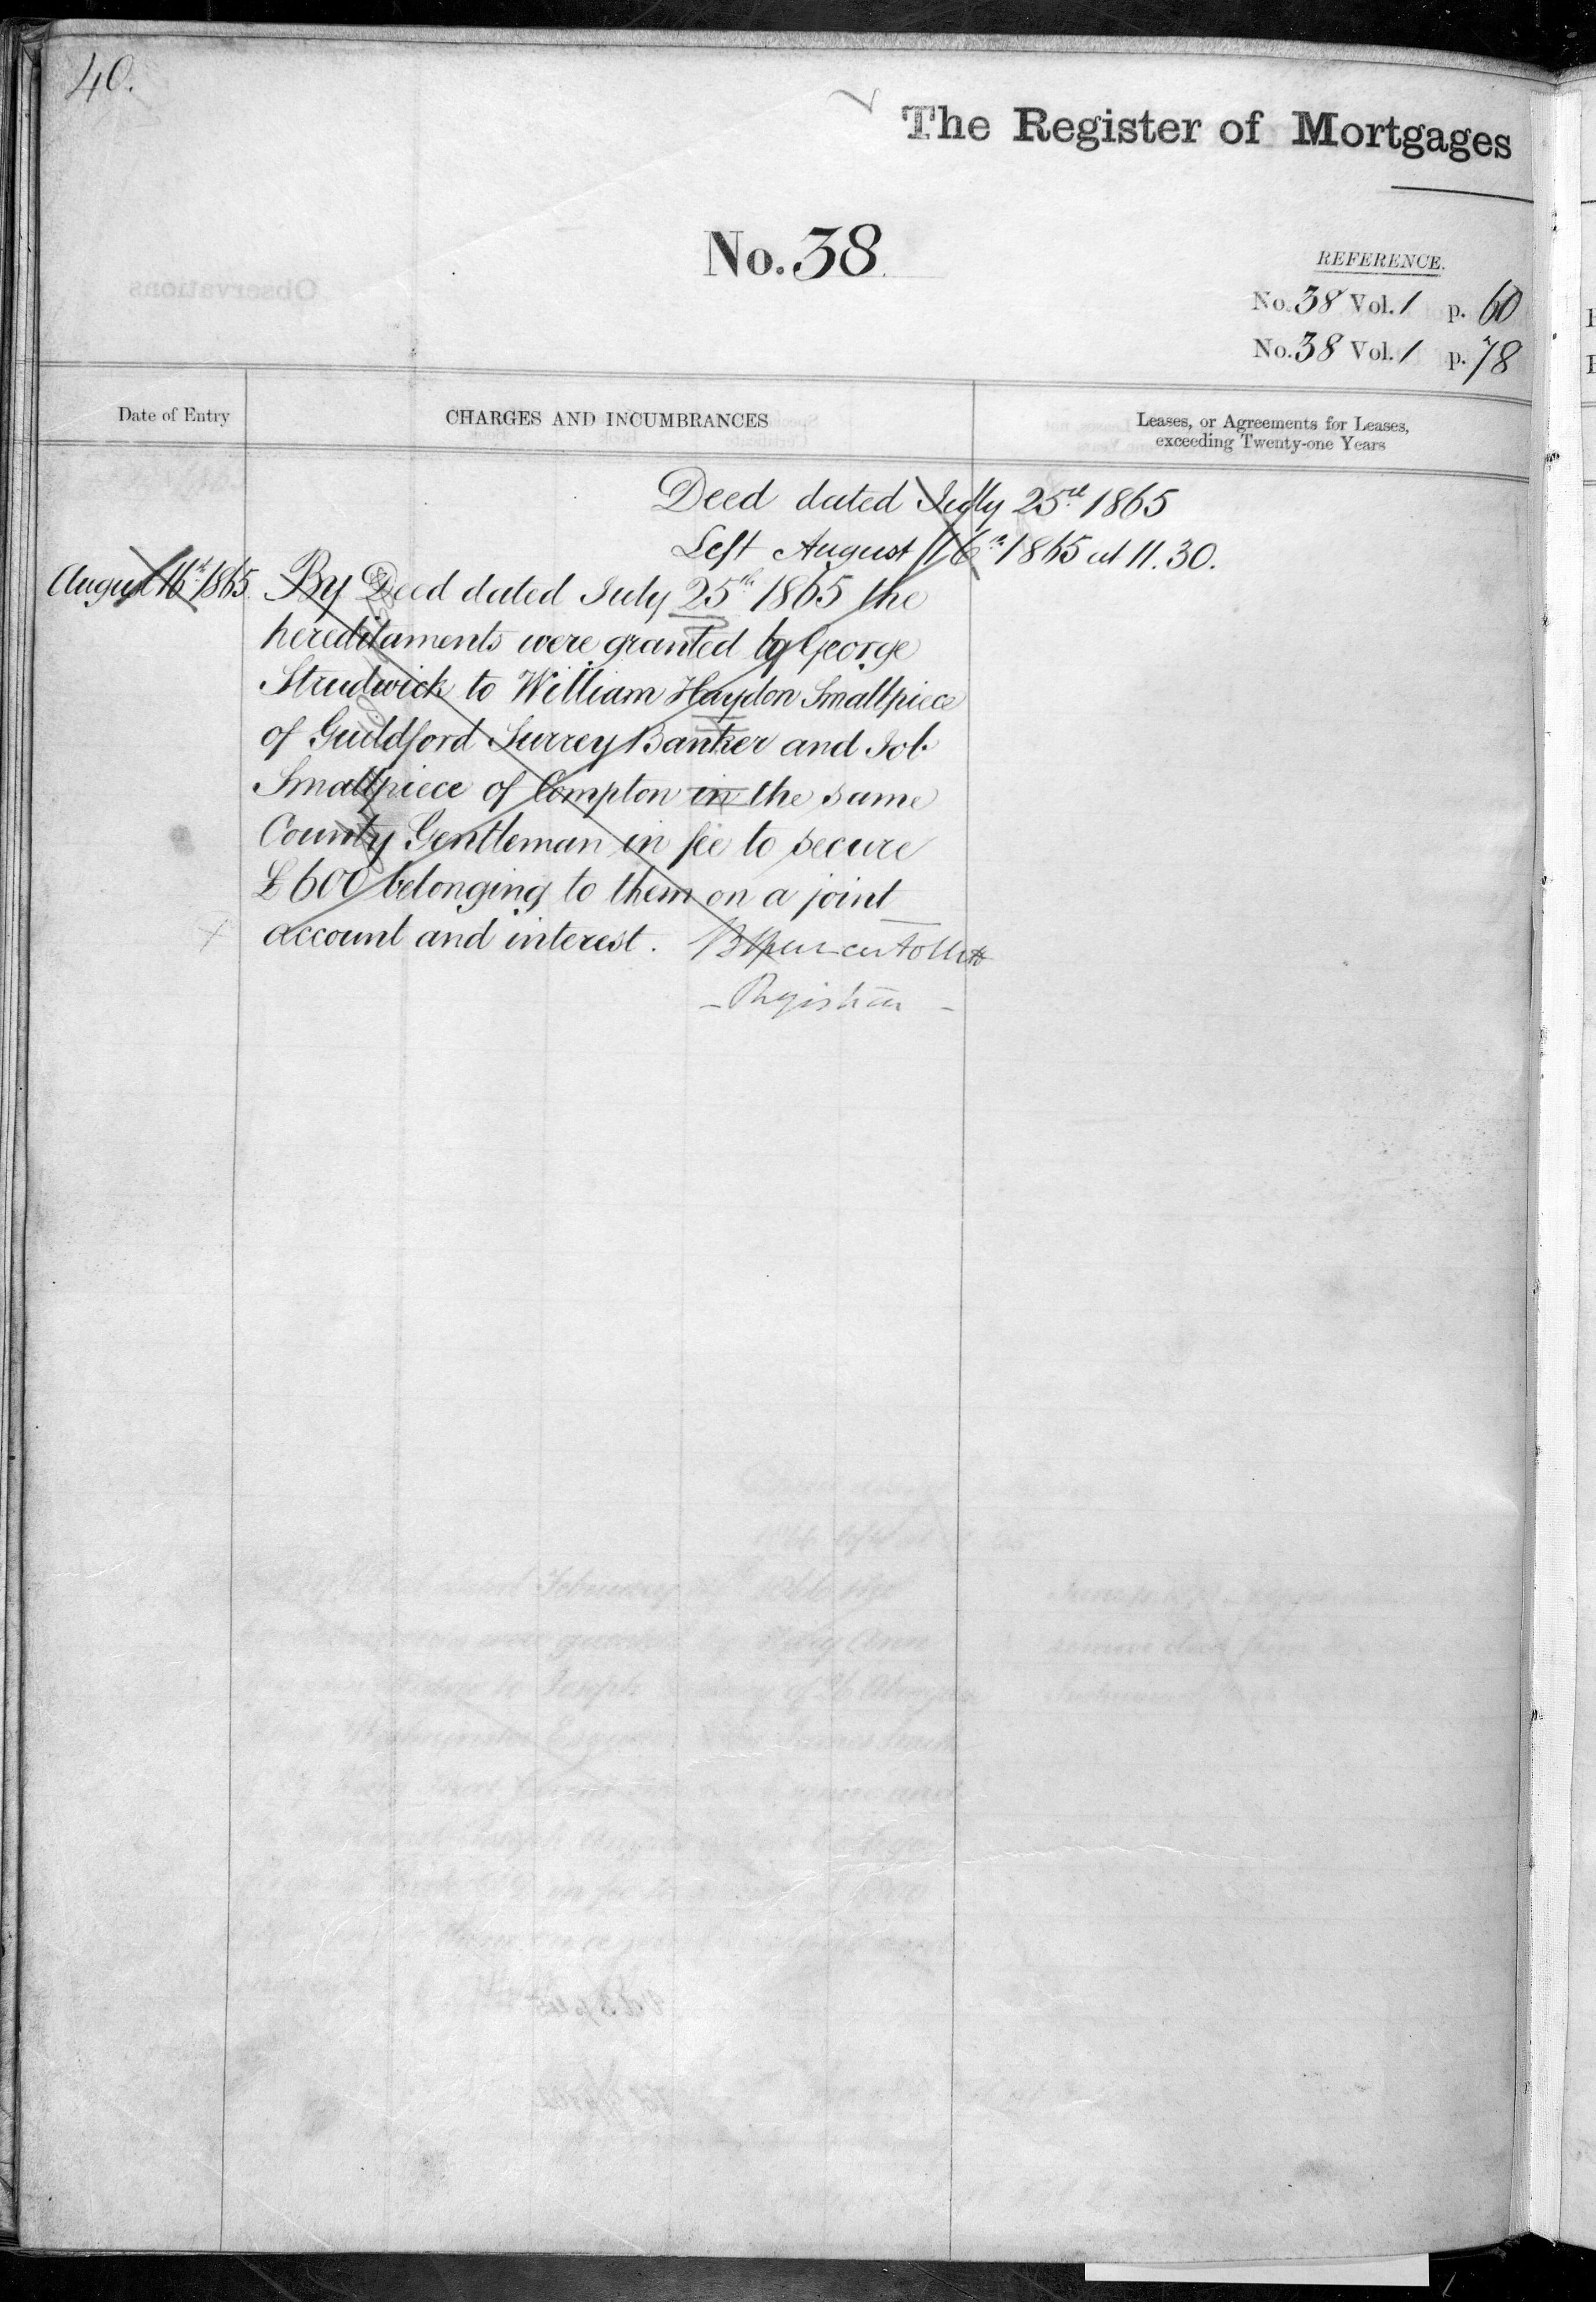 40.
The Register of Mortgages
No. 38.
REFERENCE.
No. 38 Vol. 1 p. 60
No. 38 Vol. 1 p. 78
Observations
Date of Entry
CHARGES AND INCUMBRANCES
Leases, or Agreements for Leases,
exceeding Twenty-one Years
Deed dated July 25th 1865
Left August 16th 1865 at 11.30.
August 16th 1865. By Deed dated July 25th 1865 the
hereditaments were granted by George
Strudwick to William Haydon Smallpiece
of Guildford Surrey Banker and Job
Smallpiece of Compton in the same
County Gentleman in fee to secure
£600 belonging to them on a joint
account and interest.
- Registrar -